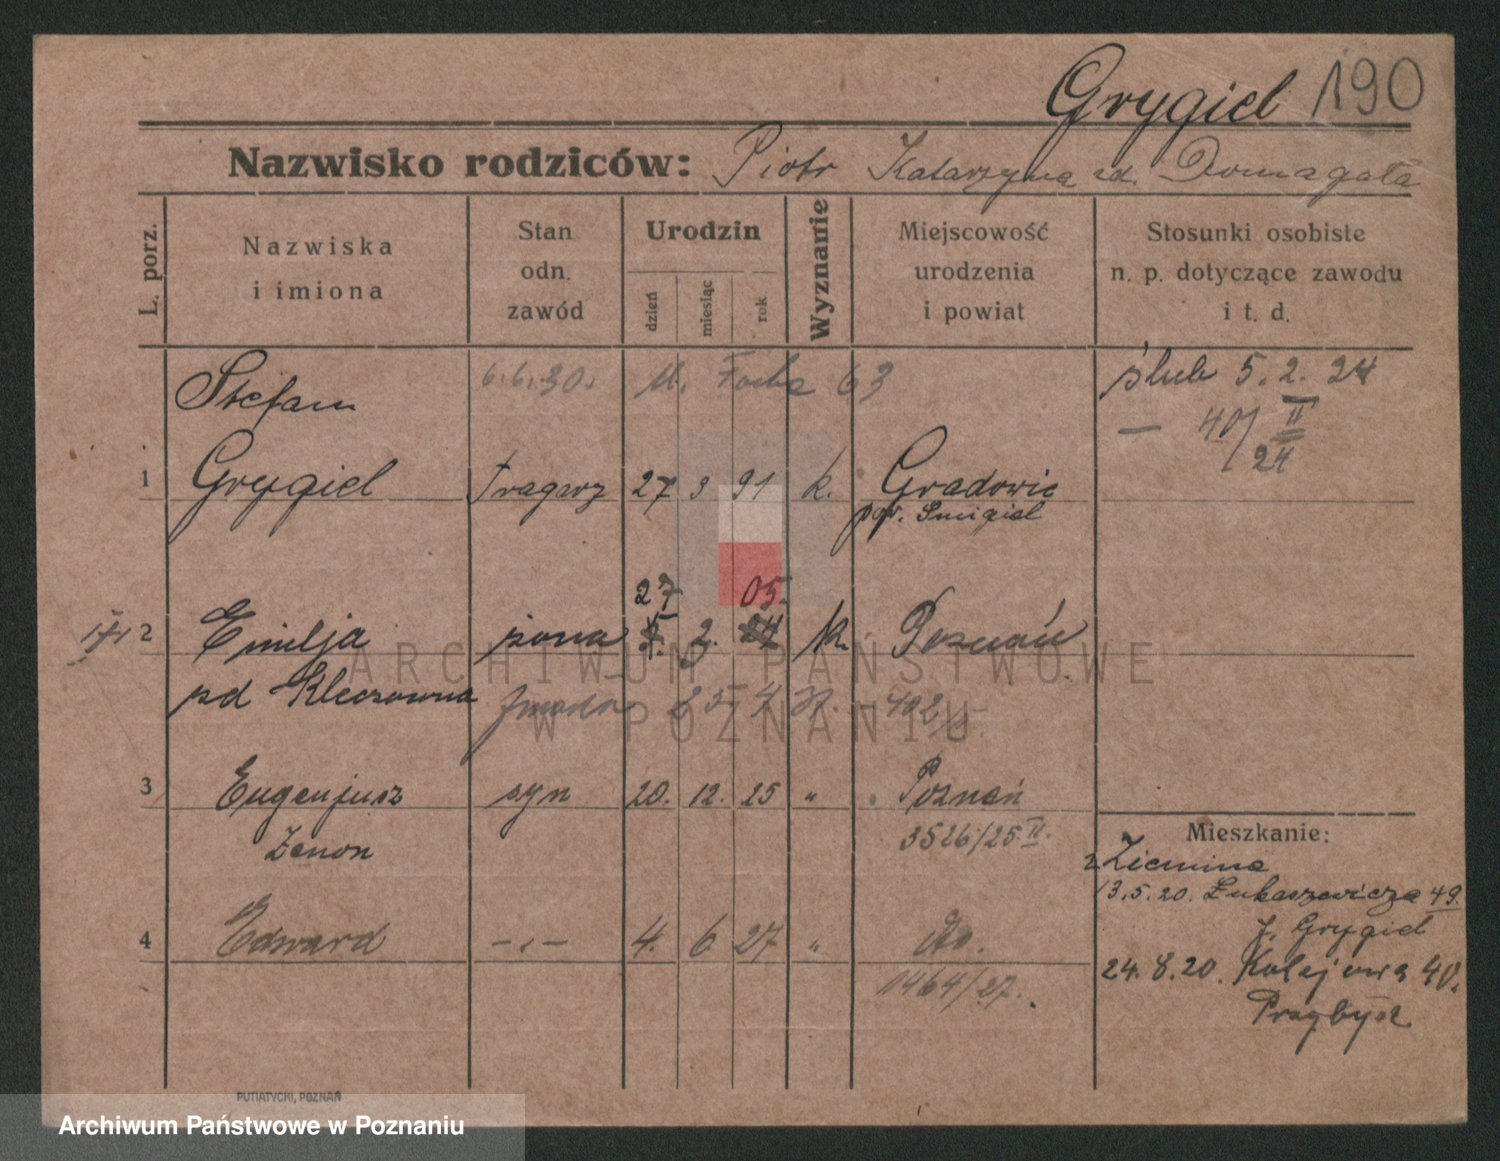 Grygiel 190
Nazwisko rodziców: Piotr Katarzyna zd. Domagała
L. porz.
Nazwiska
i imiona
Stan
odn.
zawód
Urodzin
dzień
miesiąc
rok
Wyznanie
Miejscowość
urodzenia
i powiat
Stosunki osobiste
n. p. dotyczące zawodu
i t. d.
6.6.30. M. Focha 63
ślub 5.2.24
— 40/II
24
Stefan
1 Grygiel Tragarz 27 3 91 k. Gradowic
pow. Smigiel
27 05.
2 Emilja żona 2. k. Poznań
zd Kleczewna
3 Eugenjusz syn 20. 12. 25 " Poznań
Zenon 3526/25 II.
4 Edward -"- 4. 6 27 " do.
1464/27.
Mieszkanie:
z Ziemina
13.5.20. Łukaszewicza 49.
J. Grygiel
24.8.20. Kolejowa 40.
Przybysz
PUTIATYCKI, POZNAŃ
ARCHIWUM PAŃSTWOWE
W POZNANIU
Archiwum Państwowe w Poznaniu